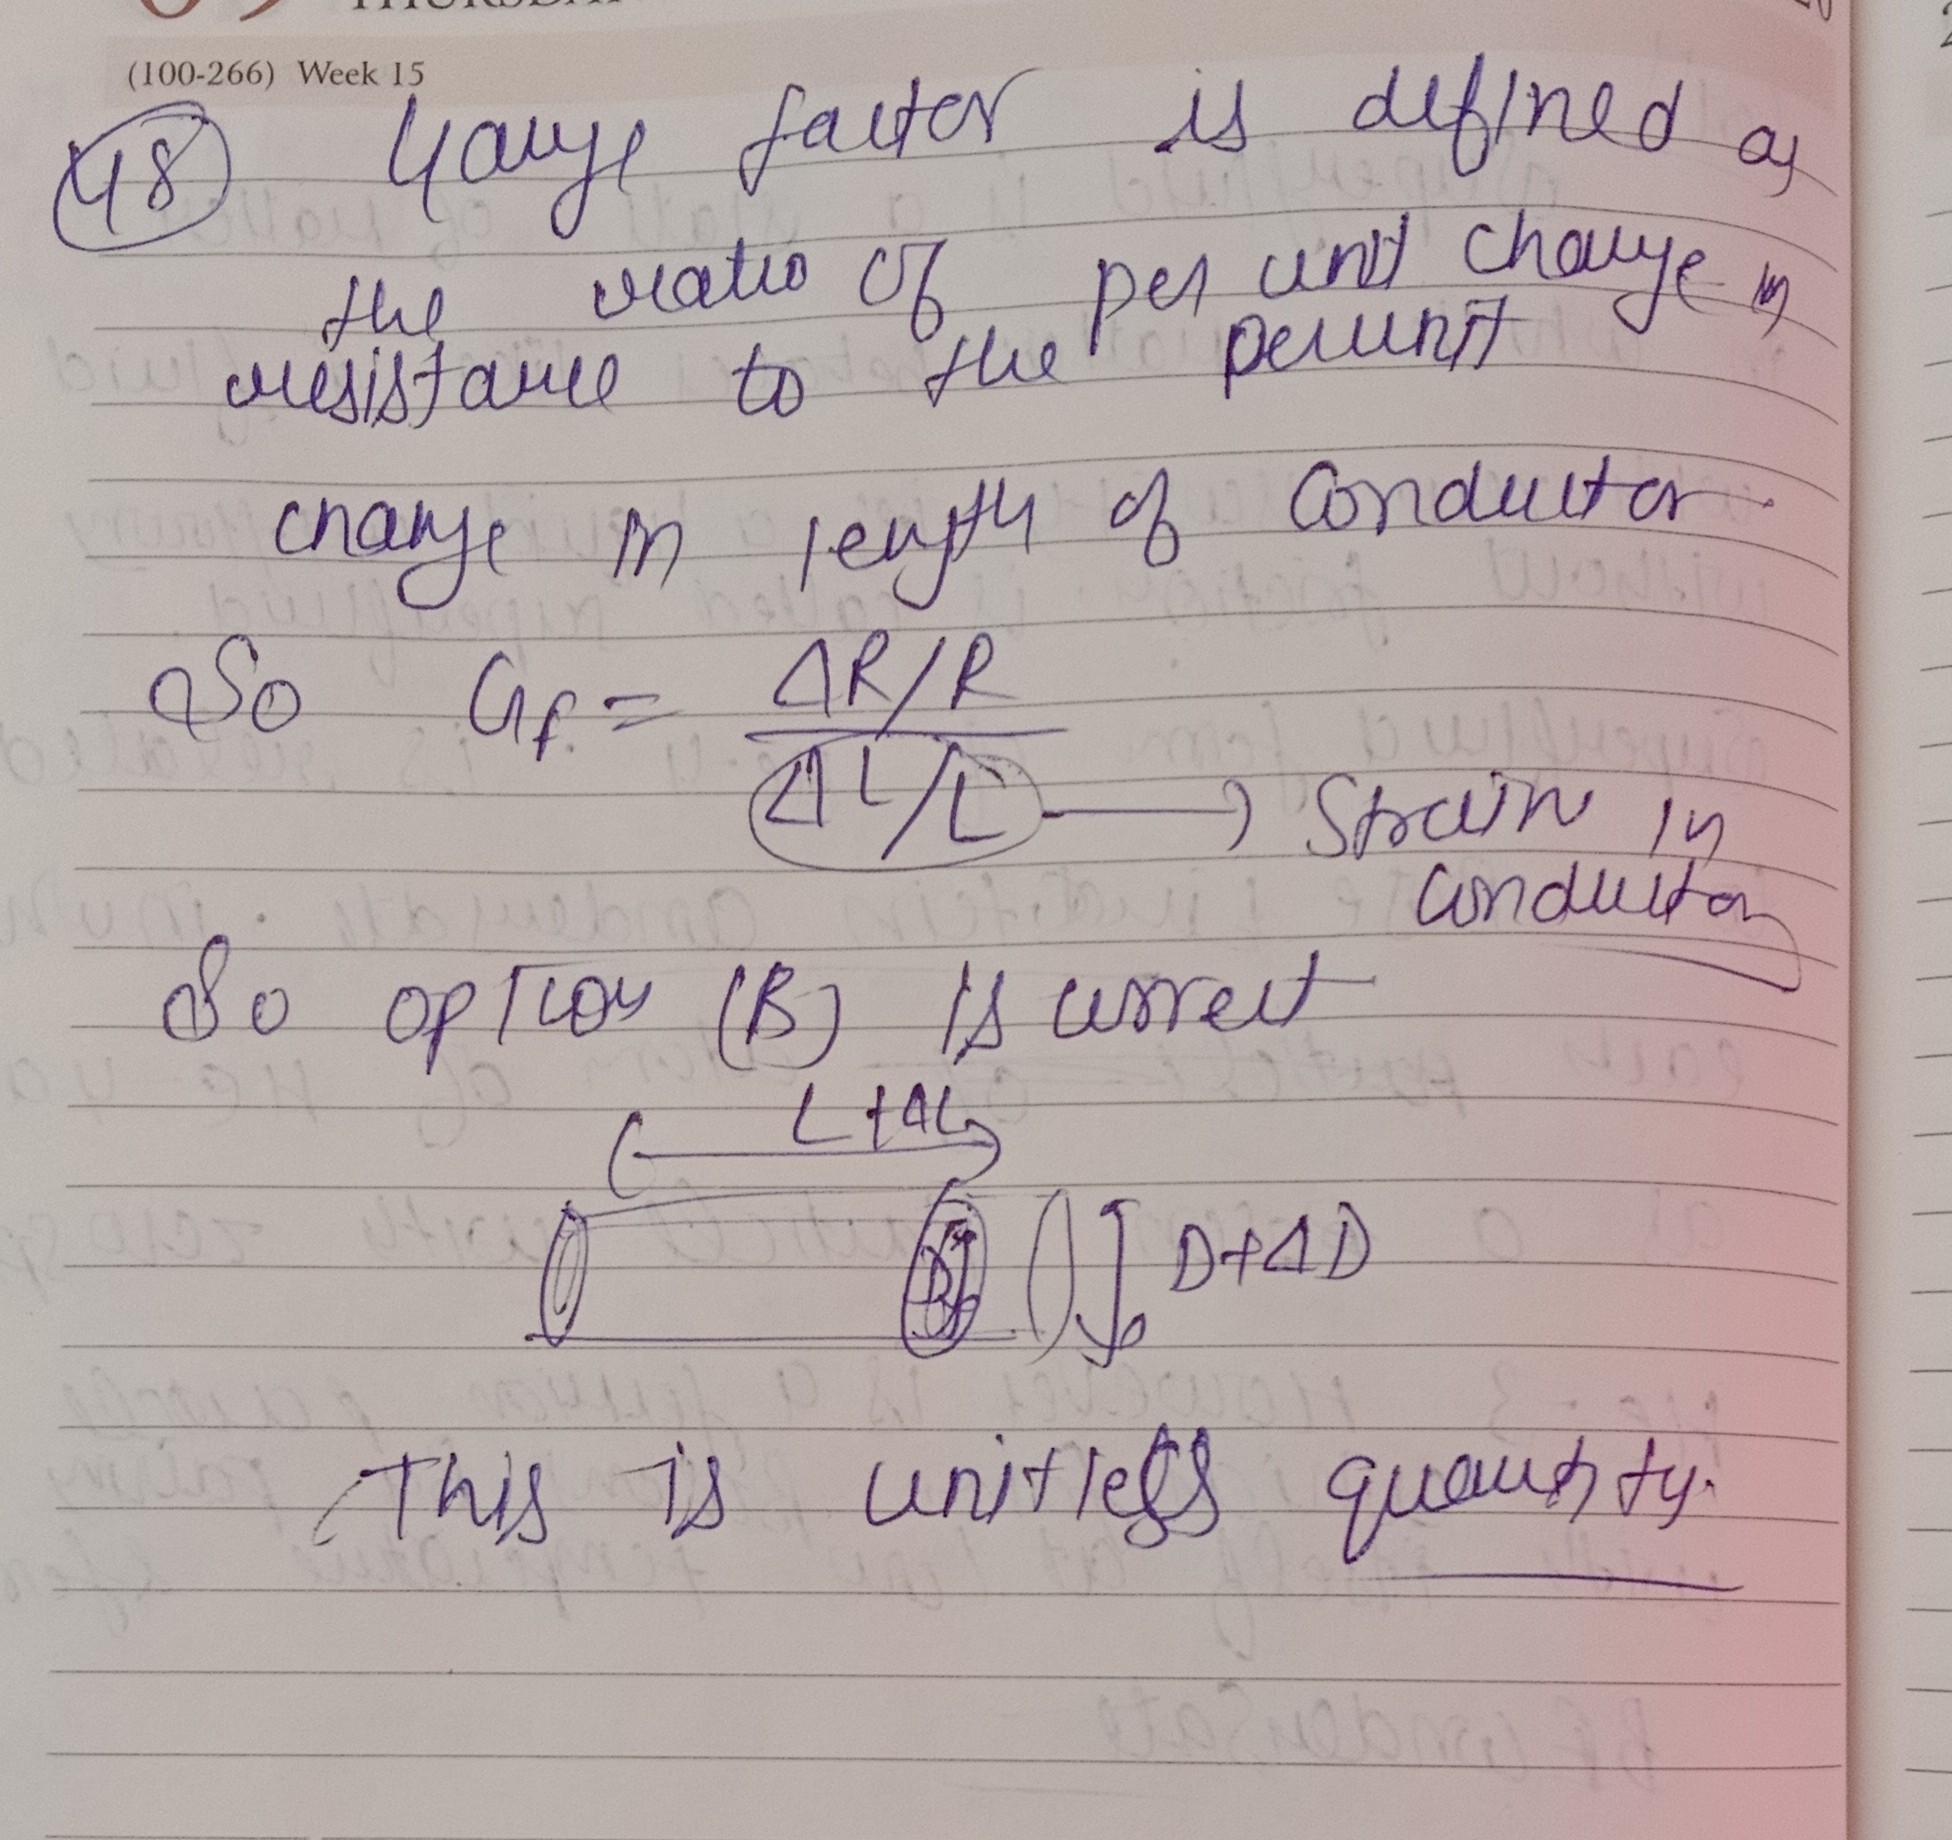 THURSDAY
(100-266) Week 15
48 Gauge factor is defined as
the ratio of per unit change in
resistance to the perunit
change in length of conductor.
So Gf = ΔR/R
ΔL/L → Strain in
conductor
So option (B) is correct
L+ΔL
D D+ΔD
This is unitless quantity.